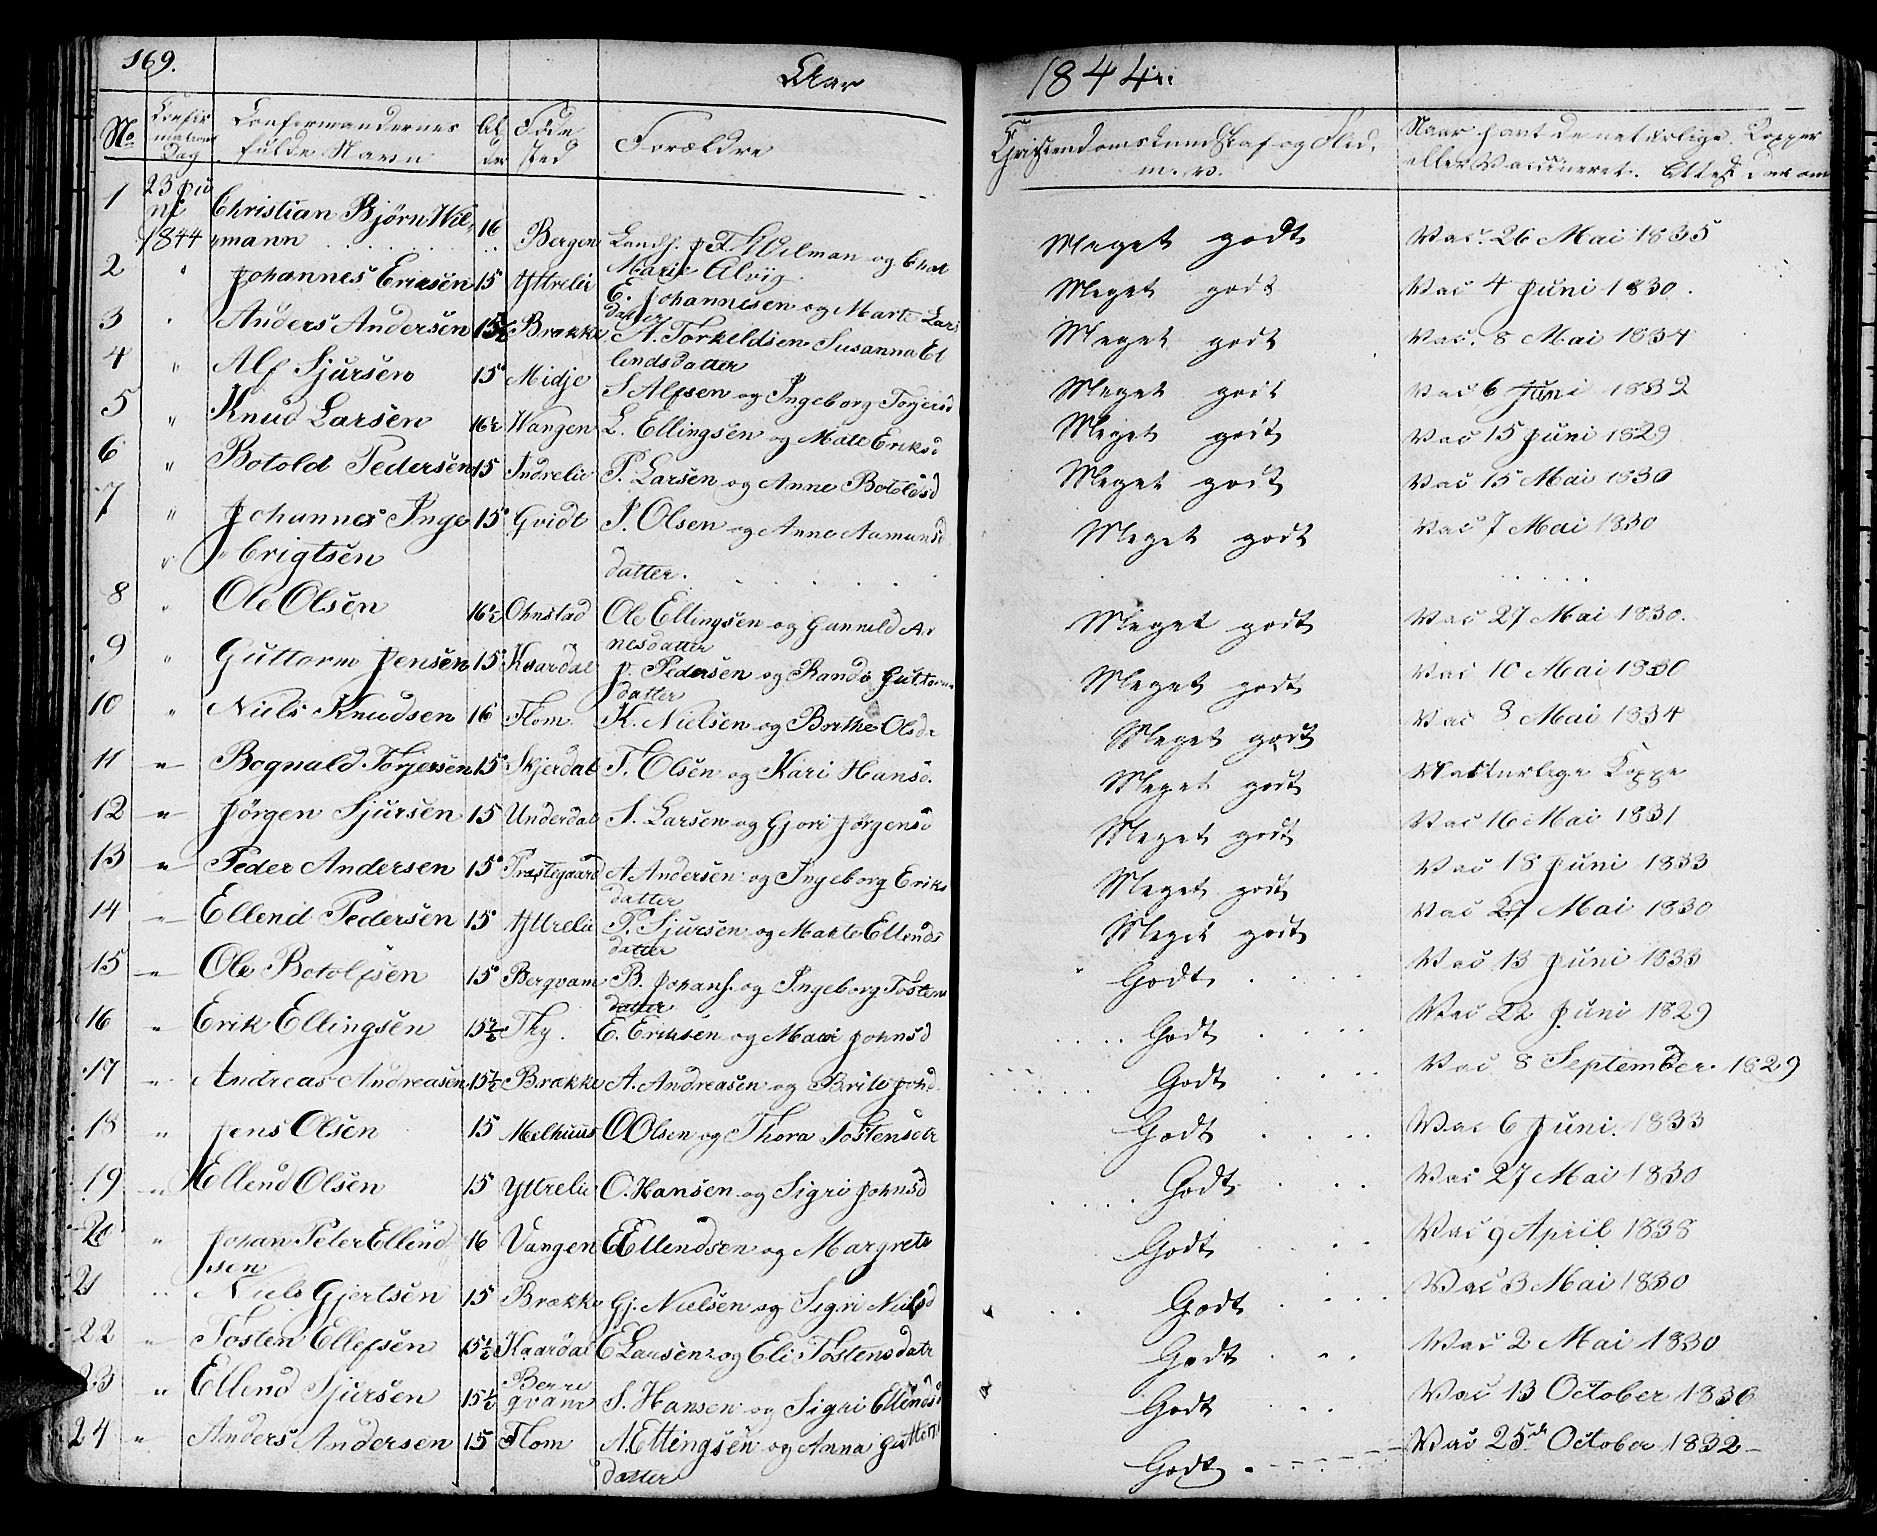 169. Aar 1844
No Confirmations Dag Confirmandernes fulde Navn Alder Føde sted Forældre Christendomskundskab og Flid. m. v. Naar havt de naturlige Kopper eller Vaccineret. Attest derom
1 23 Juni 1844 Christian Bjørn Wilmann 16 Bergen Landh. J. F. Wilman og Marie Alvig Meget godt Vac. 26 Mai 1835
2 " Johannes Ericsen 15 Yttrelie E. Johannesen og Marte Larsdatter Meget godt Vac 4 Juni 1830.
3 " Anders Andersen 15½ Brække A. Torkeldsen Susanna Ellendsdatter Meget godt Vac. 8 Mai 1834
4 " Alf Sjursen 15 Midje S Alfsen og Ingeborg Torjersd Meget godt Vac 6 Juni 1832
5 " Knud Larsen 16½ Wangen L. Ellingsen og Mate Eriksd Meget godt Vac 15 Juni 1829
6 " Botold Pedersen 15 Indrelie P. Larsen og Anne Botoldsd Meget godt Vac 15 Mai 1830
7 " Johannes Inge 15 Gvidt I. Olsen og Anne Aamunds Meget godt Vac 7 Mai 1830
" " brigtsen datter.
8 " Ole Olsen 16½ Ohnstad Ole Ellingsen og Gunnild Arnesdatter Meget godt Vac 27 Mai 1830.
9 " Guttorm Jensen 15 Kaardal J. Pedersen og Randi Guttormsdatter Meget godt Vac 10 Mai 1830
10 " Niels Knudsen 16 Flom K. Nielsen og Brithe Olsdr Meget godt Vac 8 Mai 1834
11 " Rognald Torjersen 15 Skjerdal T. Olsen og Kari Hansd. Meget godt Naturlige Koppe
12 " Jørgen Sjursen 15 Underdal S. Larsen og Gjori Jørgensd Meget godt Vac 16 Mai 1831
13 " Peder Andersen 15 Præstegaard A Andersen og Ingeborg Eriksdatter Meget godt Vac 18 Juni 1833
14 " Ellend Pedersen 15 Yttrelie P. Sjursen og Marte Ellendsdatter Meget godt Vac 27 Mai 1830
15 " Ole Botolfsen 15 Bergvam B. Johans. og Ingeborg Tostensdatter Godt Vac 13 Juni 1833
16 " Erik Ellingsen 15½ Thy. E. Ericksen og Mari Johnsd Godt Vac 22 Juni 1829
17 " Andreas Andreasen 15½ Brække A. Andreasen og Brite Johd Godt Vac 8 September 1829
18 " Jens Olsen 15 Melhuus O Olsen og Thora Tostensdtr Godt Vac 6 Juni 1833
19 " Ellend Olsen 15 Yttrelie O. Hansen og Sigri Johnsd Godt Vac 27 Mai 1830
20 " Johan Peter Ellendsen 16 Vangen E Ellendsen og Margrete Godt Vac 9 April 1838
21 " Niels Gjertsen 15 Brække Gj. Nielsen og Sigri Nielsd Godt Vac 3 Mai 1830
22 " Tosten Ellefsen 15½ Kaardal E Larsen og Eli Tostensdatr Godt Vac 2 Mai 1830
23 " Ellend Sjursen 15½ Berregvam S. Hansen og Sigri Ellendsd Godt Vac 13 October 1830
24 " Anders Andersen 15 Flom A. Ellingsen og Anna Guttormdatter Godt Vac 25de October 1832